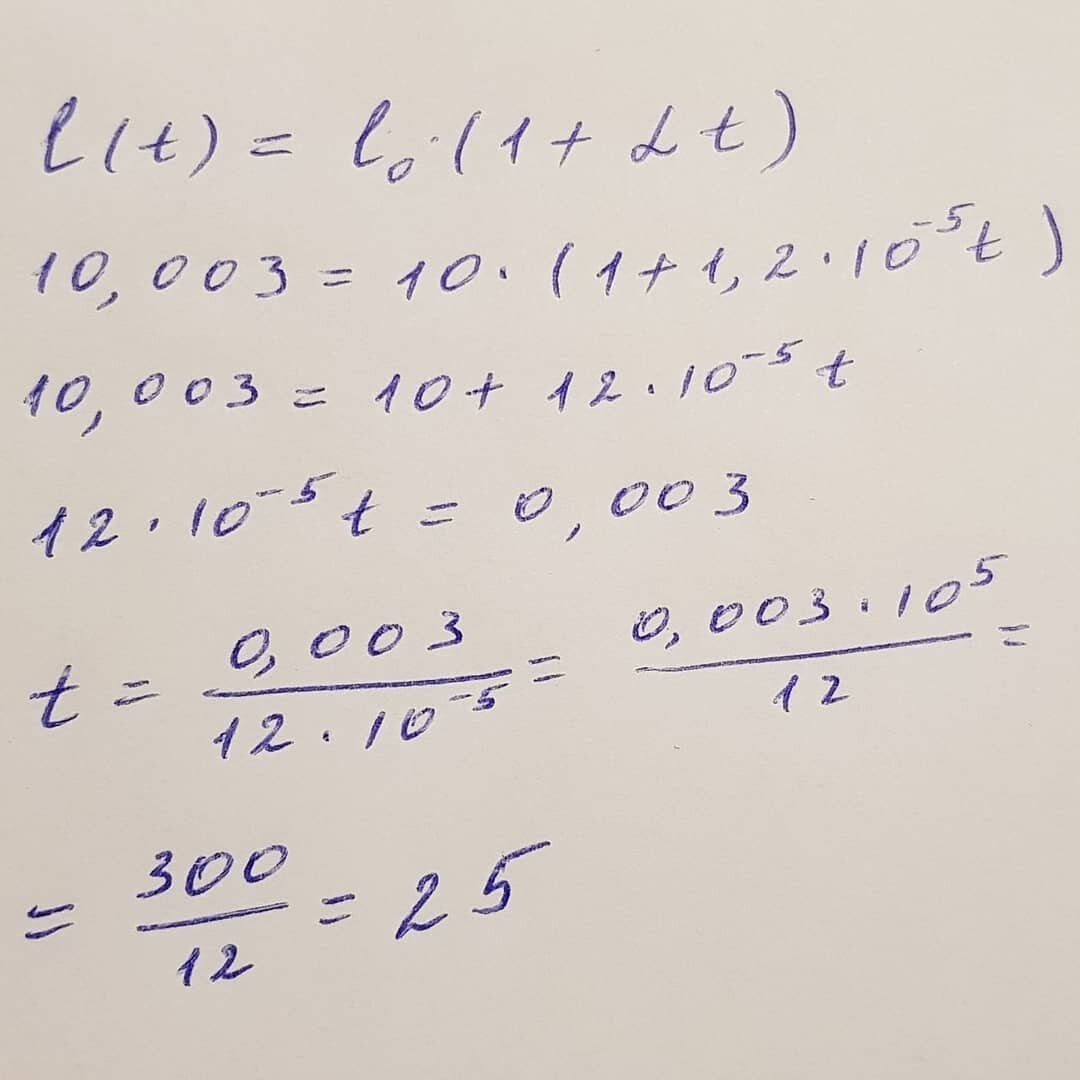 l(t) = l₀·(1 + αt)
10,003 = 10·(1 + 1,2·10⁻⁵t)
10,003 = 10 + 12·10⁻⁵ t
12·10⁻⁵ t = 0,003
t = 0,003 / 12·10⁻⁵ = 0,003·10⁵ / 12 =
= 300 / 12 = 25